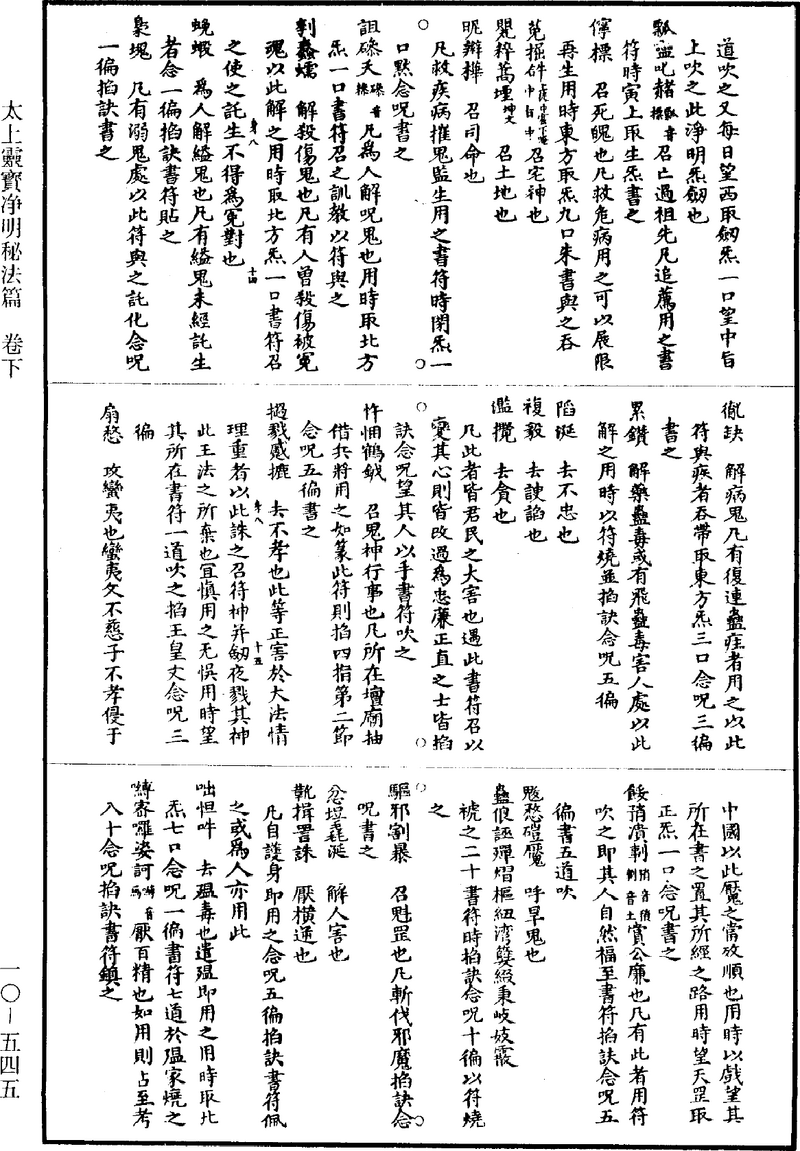 道吹之又每日望西取劒炁一口望中旨
上吹之此淨明炁劒也
瓢 叱 召亡過祖先凡追薦用之書
符時寅上取生炁書之
儜標 召死魄也凡救危病用之可以展限
再生用時東方取炁九口朱書與之吞
召宅神也
召土地也
昵辯 召司命也
凡救疾病摧鬼監生用之書符時閉炁一
口默念呪書之
詛磔天 凡為人解呪鬼也用時取北方
炁一口書符召之訓教以符與之
解殺傷鬼也凡有人曾殺傷被冤
魂以此解之用時取北方炁一口書符召
之使之託生不得為冤對也
蜿蝦 為人解縊鬼也凡有縊鬼未經託生
者念一徧掐訣書符貼之
梟塊 凡有溺鬼處以此符與之託化念呪
一徧掐訣書之
缺 解病鬼凡有復連蠱疰者用之以此
符與疾者吞帶取東方炁三口念呪三徧
書之
累鑽 解藥蠱毒或有飛蠱毒害人處以此
解之用時以符燒並掐訣念呪五徧
陷涎 去不忠也
複毅 去諛諂也
濫攬 去貪也
凡此者皆君民之大害也遇此書符召以
變其心則皆改過為忠廉正直之士皆掐
訣念呪望其人以手書符吹之
忤 鶴 召鬼神行事也凡所在壇廟抽
借兵將用之如篆此符則掐四指第二節
念呪五徧書之
去不孝也此等正害於大法情
理重者以此誅之召符神并劒夜戮其神
此王法之所棄也宜慎用之无悞用時望
其所在書符一道吹之掐王皇文念呪三
徧
扇愁 攻蠻夷也蠻夷父不慈子不孝侵于
中國以此魘之當放順也用時以戲望其
所在書之置其所經之路用時望天罡取
正炁一口念呪書之
賞公廉也凡有此者用符
吹之即其人自然福至書符掐訣念呪五
徧書五道吹
愁磑魘 呼旱鬼也
樞紐湾 綴秉岐妓霰
褫之二十書符時掐訣念呪十徧以符燒
之
驅邪劉暴 召魁罡也凡斬伐邪魔掐訣念
呪書之
忿 涎 解人害也
揖署誅 厭橫通也
凡自護身即用之念呪五徧掐訣書符佩
之或為人亦用此
咄怛吽 去瘟毒也遣瘟即用之用時取北
炁七口念呪一徧書符七道於瘟家燒之
囉娑訶 厭百精也如用則占至考
入十念呪掐訣書符鎮之
身八
十四
身八
十五
太上靈寶净明秘法篇 卷下
一〇—五四五